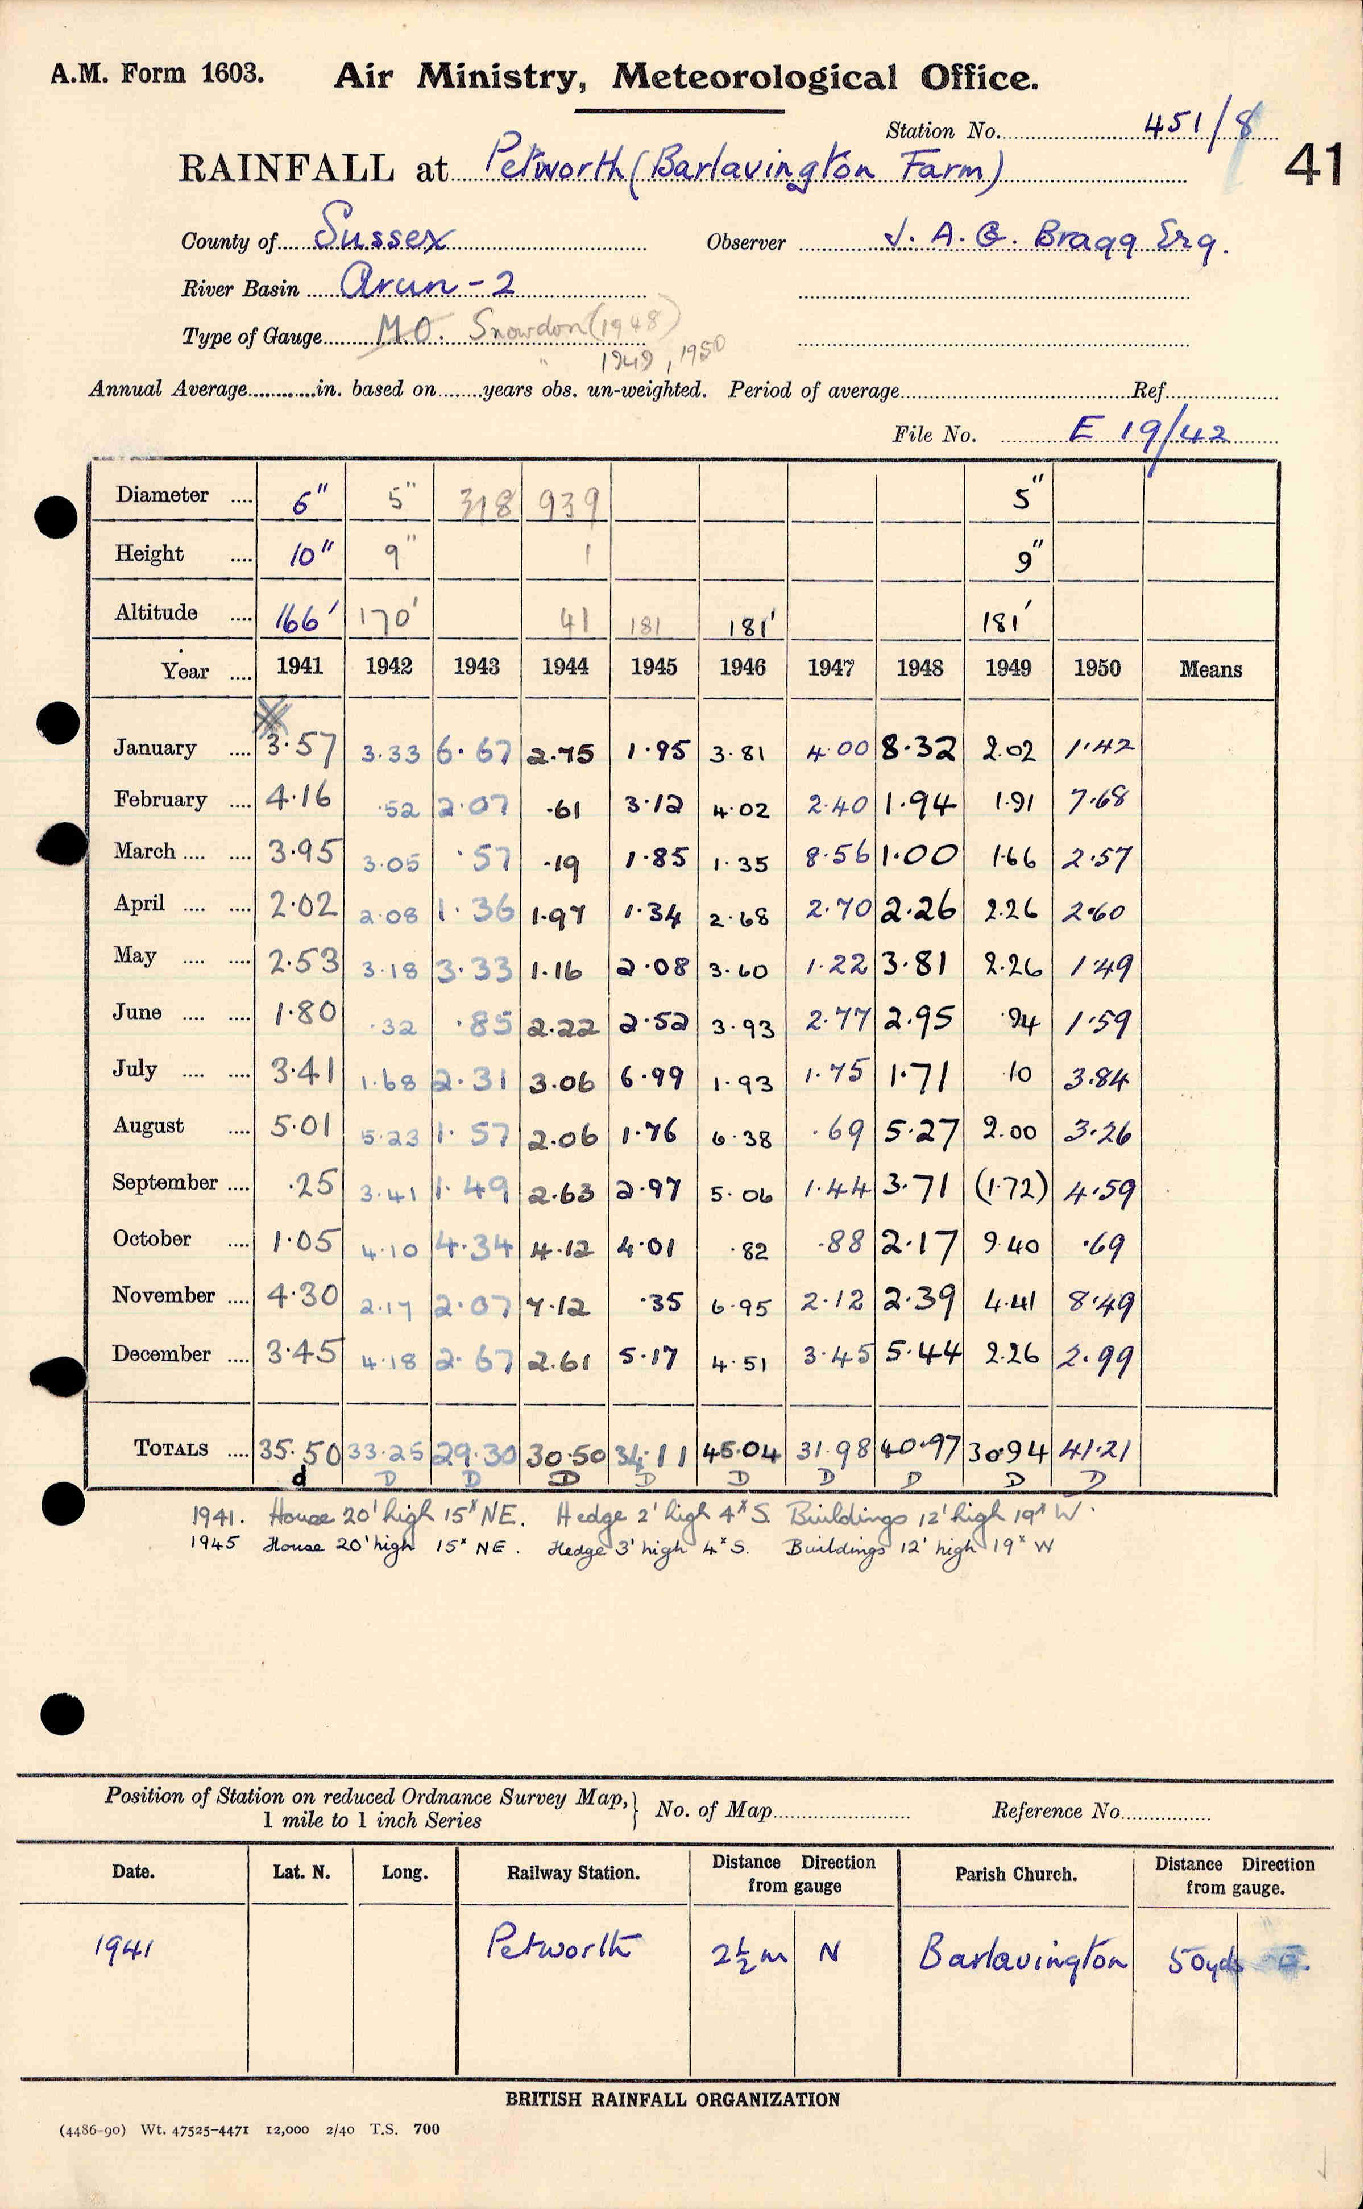 A.M. Form 1603. Air Ministry, Meteorological Office.
Station No. 451/8
41
RAINFALL at Petworth (Barlavington Farm)
County of Sussex Observer J. A. G. Bragg Esq.
River Basin Arun - 2
Type of Gauge M.O. Snowdon (1948)
" 1949, 1950
Annual Average in. based on years obs. un-weighted. Period of average Ref.
File No. E 19/42
Diameter .... 6" 5" 318 939 5"
Height .... 10" 9" 1 9"
Altitude .... 166' 170' 41 181 181' 181'
Year .... 1941 1942 1943 1944 1945 1946 1947 1948 1949 1950 Means
January .... 3.57 3.33 6.67 2.75 1.95 3.81 4.00 8.32 2.02 1.42
February .... 4.16 .52 2.07 .61 3.12 4.02 2.40 1.94 1.91 7.68
March .... .... 3.95 3.05 .57 .19 1.85 1.35 8.56 1.00 1.66 2.57
April .... .... 2.02 2.08 1.36 1.97 1.34 2.68 2.70 2.26 2.26 2.60
May .... .... 2.53 3.18 3.33 1.16 2.08 3.60 1.22 3.81 2.26 1.49
June .... .... 1.80 .32 .85 2.22 2.52 3.93 2.77 2.95 .94 1.59
July .... .... 3.41 1.68 2.31 3.06 6.99 1.93 1.75 1.71 .10 3.84
August .... 5.01 5.23 1.57 2.06 1.76 6.38 .69 5.27 2.00 3.26
September .... .25 3.41 1.49 2.63 2.97 5.06 1.44 3.71 (1.72) 4.59
October .... 1.05 4.10 4.34 4.12 4.01 .82 .88 2.17 9.40 .69
November .... 4.30 2.17 2.07 7.12 .35 6.95 2.12 2.39 4.41 8.49
December .... 3.45 4.18 2.67 2.61 5.17 4.51 3.45 5.44 2.26 2.99
TOTALS .... 35.50 33.25 29.30 30.50 34.11 45.04 31.98 40.97 30.94 41.21
d D D D D D D D D D
1941. House 20' high 15x NE. Hedge 2' high 4x S. Buildings 12' high 19x W.
1945 House 20' high 15x NE. Hedge 3' high 4x S. Buildings 12' high 19x W
Position of Station on reduced Ordnance Survey Map, } No. of Map Reference No.
1 mile to 1 inch Series
Date. Lat. N. Long. Railway Station. Distance Direction from gauge Parish Church. Distance Direction from gauge.
1941 Petworth 2½ m N Barlavington 50yds E.
BRITISH RAINFALL ORGANIZATION
(4486-90) Wt. 47525-4471 12,000 2/40 T.S. 700